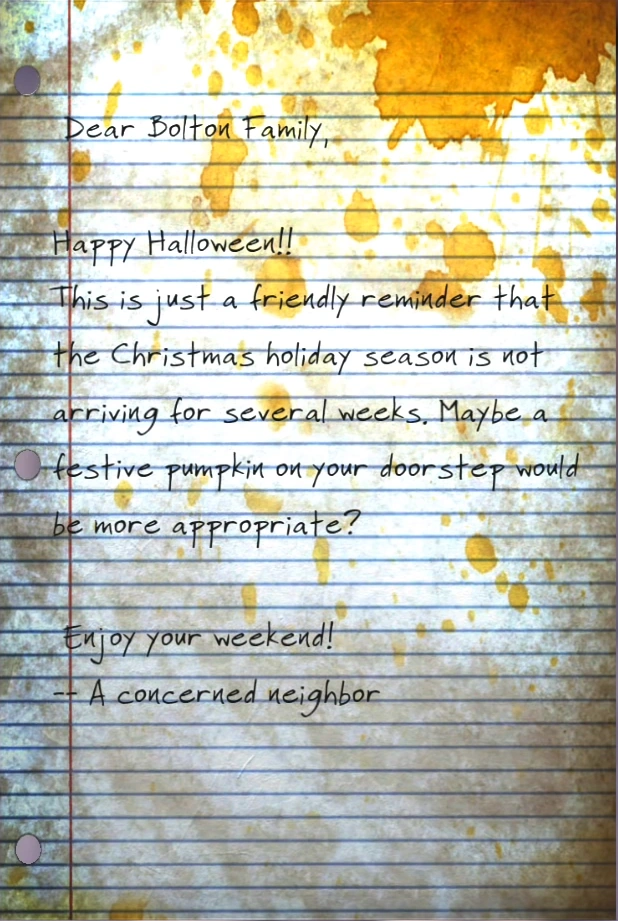 Dear Bolton Family,
Happy Halloween!!
This is just a friendly reminder that
the Christmas holiday season is not
arriving for several weeks. Maybe a
festive pumpkin on your doorstep would
be more appropriate?
Enjoy your weekend!
-- A concerned neighbor